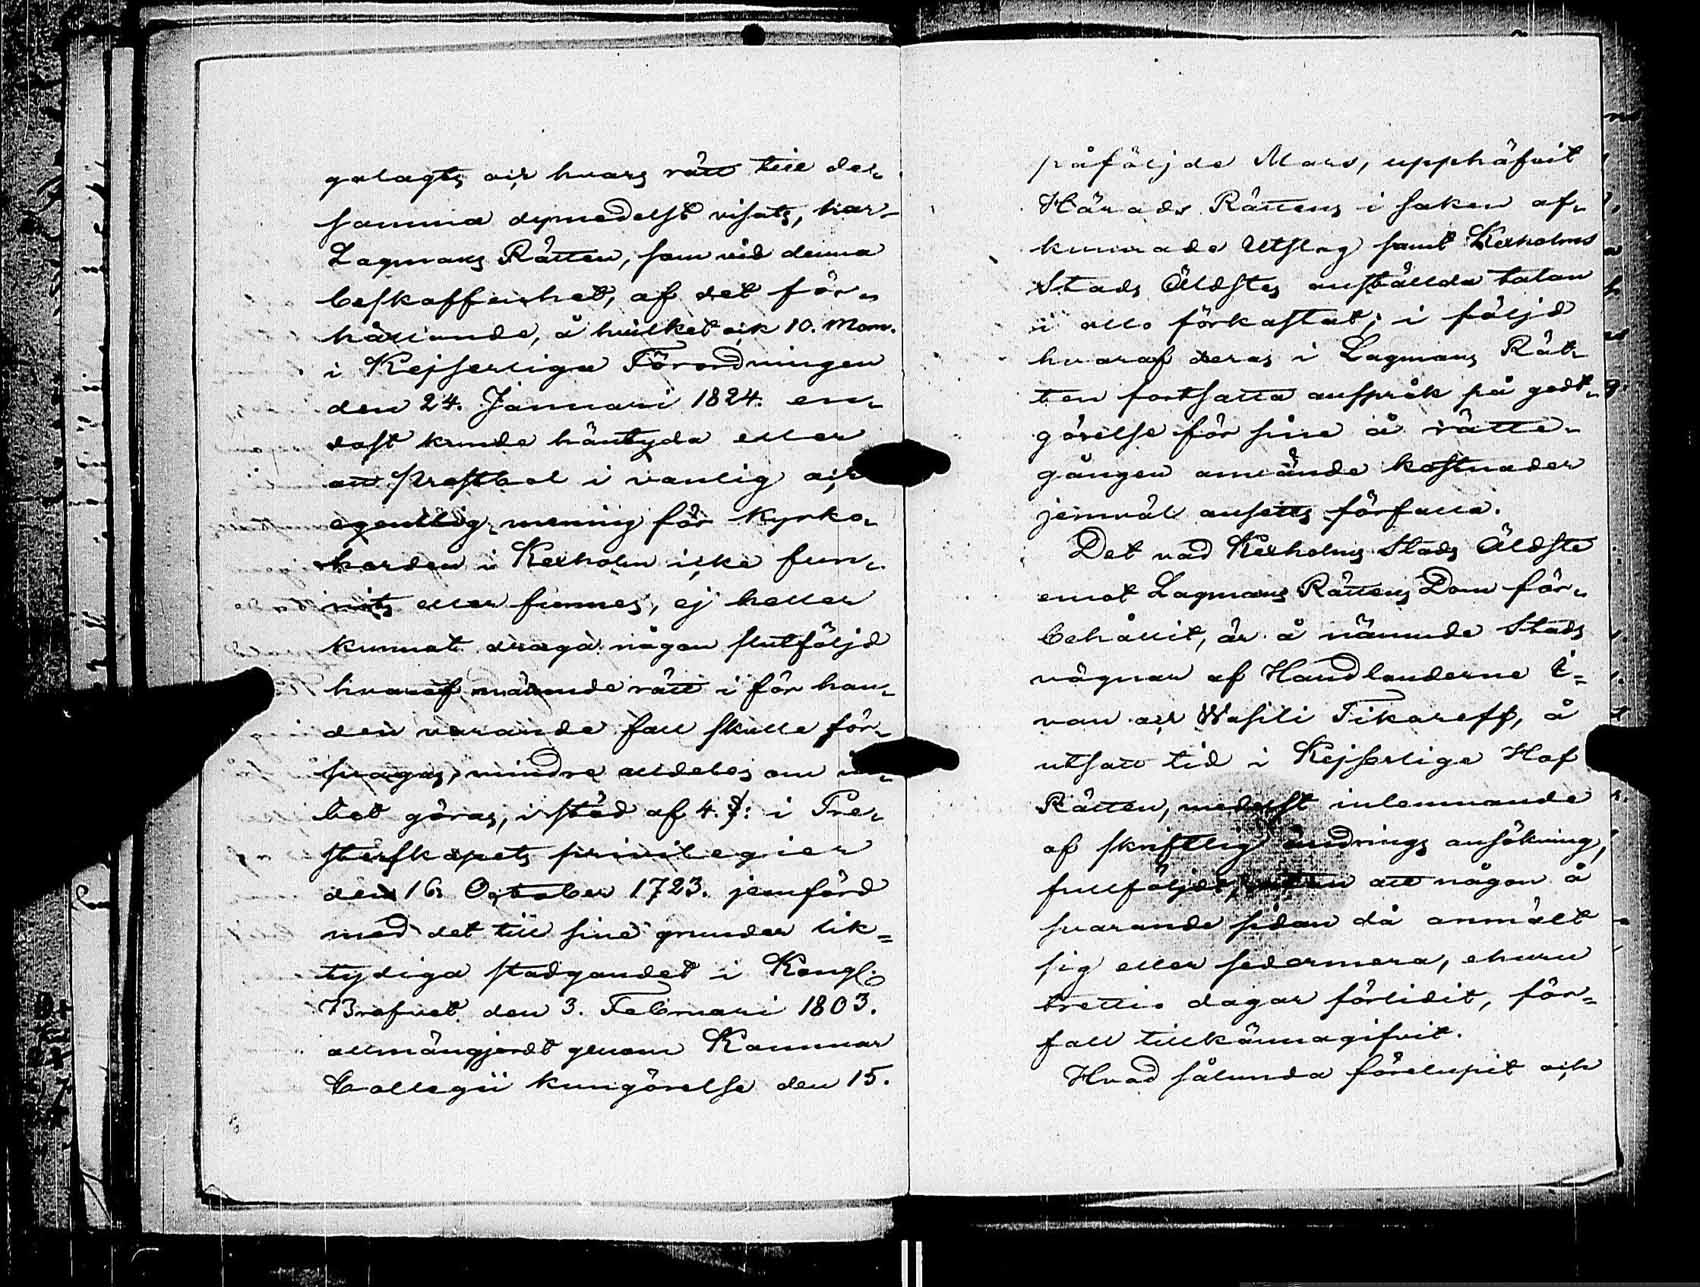 galagts och hvars rätt till der-
samma dymedelst visats, har
Lagmans Rätten, som vid denna
beskaffenhet, af det för-
hållande, å hvilket och 10. Mom.
i Kejserliga Förordningen
den 24. Januari 1824. en-
dast kunde häntyda eller
att Prestbol i vanlig och
egentlig mening för Kyrko-
herden i Kexholm icke fun-
nits eller finnes, ej heller
kunnat draga någon slutföljd
hvaraf nämnde rätt i för han-
den varande fall skulle för-
svagas, mindre alldeles om in-
tet göras, i stöd af 4. §: i Pre-
sterskapets privilegier
den 16. October 1723. jemförd
med det till sine grunder lik-
tydiga stadgandet i Kongl.
Brefvet den 3. Februari 1803.
allmängjordt genom Kammar
Collegii kungörelse den 15.
påföljde Mars, upphäfvit
Härads Rättens i saken af-
kunnade Utslag samt Kexholms
Stads Äldstes anställda talan
i allo förkastat; i följd
hvaraf deras i Lagmans Rät-
ten fortsatta anspråk på godt-
görelse för sine å rätte-
gången använde kostnader
jemväl ansetts förfalla.
Det vad Kexholms Stads Äldste
emot Lagmans Rättens Dom för-
behållit, är å nämnde Stads
vägnar af Handlanderne I-
van och Wasili Tikareff, å
utsatt tid i Kejserliga Hof
Rätten, medelst inlemnande
af skriftlig ändrings ansökning,
fullföljdt, utan att någon å
svarande sidan då anmält
sig eller sedermera, ehuru
trettio dagar förlidit, för-
fall tillkännagifvit.
Hvad sålunda förelupit och